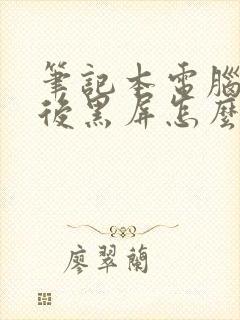 筆記本電腦
後黑屏怎麼
廖翠蘭